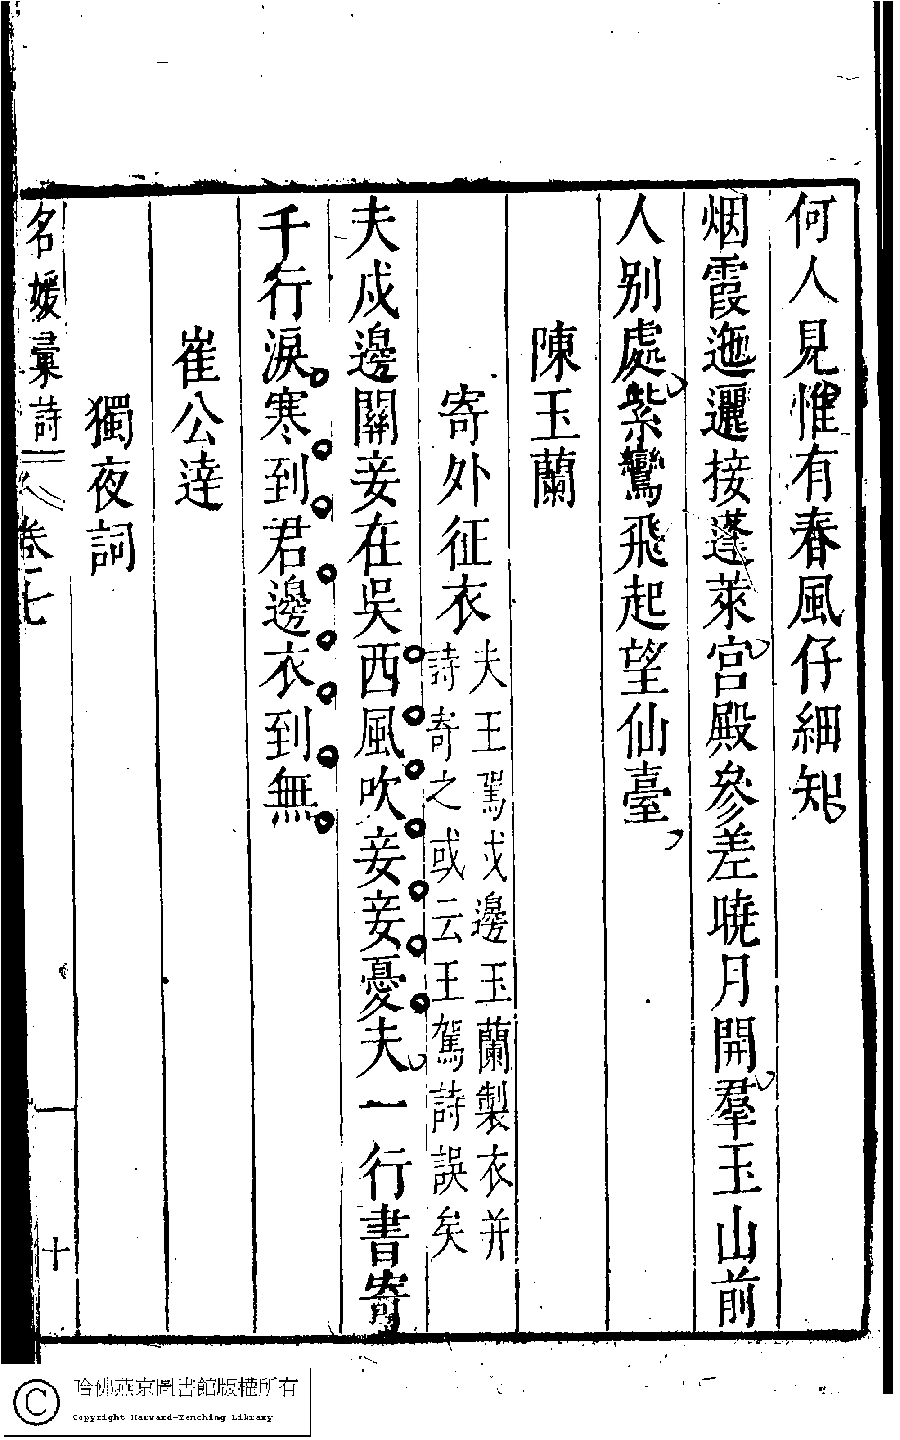 何人見惟有春風仔細知
烟霞迤邐接蓬萊宮殿參差曉月開羣玉山前
人別處紫鸞飛起望仙臺
陳玉蘭
寄外征衣
夫王駕戍邊玉蘭製衣并
詩寄之或云王駕詩誤矣
夫戍邊關妾在吳西風吹妾妾憂夫一行書寄
千行淚寒到君邊衣到無
崔公達
獨夜詞
名媛彙詩 卷七 十
哈佛燕京圖書館版權所有
Copyright Harvard-Yenching Library